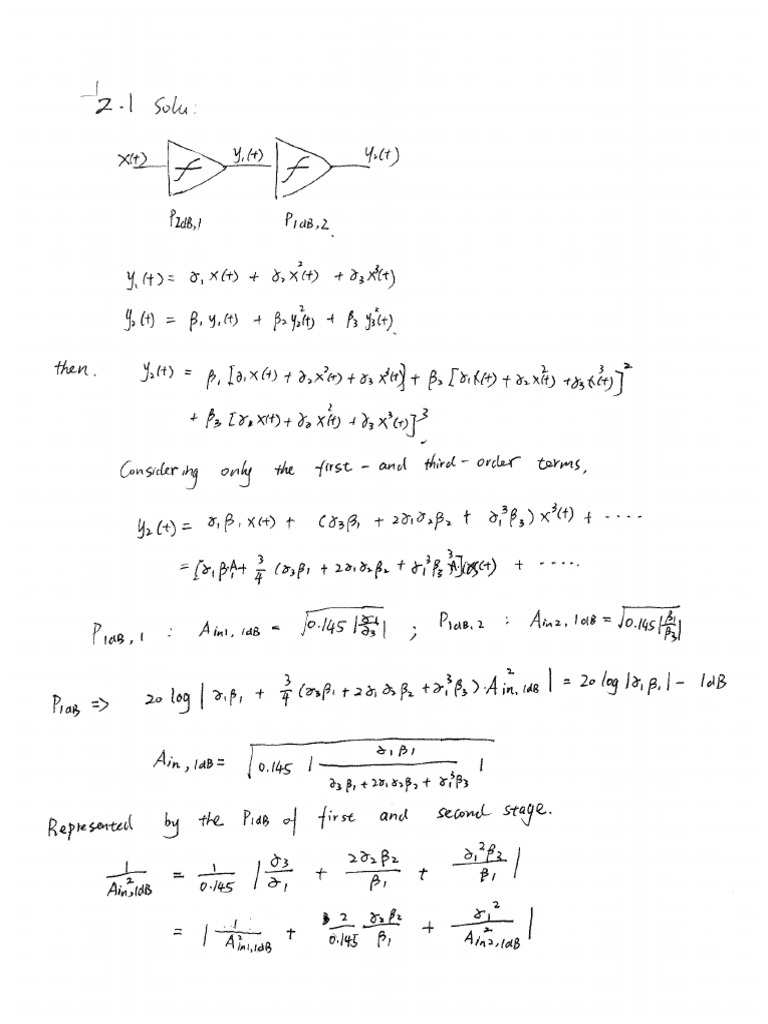 2.1 Solu:
x(t) y₁(t) y₂(t)
P2dB,1 P1dB,2.
y₁(t) = α₁ x(t) + α₂ x²(t) + α₃ x³(t)
y₂(t) = β₁ y₁(t) + β₂ y₂²(t) + β₃ y₃²(t).
then. y₂(t) = β₁ [α₁ x(t) + α₂ x²(t) + α₃ x³(t)] + β₂ [α₁ x(t) + α₂ x²(t) + α₃ x³(t)]²
+ β₃ [α₁ x(t) + α₂ x²(t) + α₃ x³(t)]³.
Considering only the first- and third-order terms,
y₂(t) = α₁ β₁ x(t) + (α₃β₁ + 2α₁α₂β₂ + α₁³β₃) x³(t) + ....
= [α₁β₁A + 3/4 (α₃β₁ + 2α₁α₂β₂ + α₁³β₃)A³] cos(t) + .....
P1dB,1 : Ain1,1dB = √(0.145 |α₁/α₃|) ; P1dB,2 : Ain2,1dB = √(0.145 |β₁/β₃|)
P1dB => 20 log | α₁β₁ + 3/4 (α₃β₁ + 2α₁α₂β₂ + α₁³β₃)·A²in,1dB | = 20 log |α₁β₁| - 1dB
Ain,1dB = √(0.145 | α₁β₁ / (α₃β₁ + 2α₁α₂β₂ + α₁³β₃) |)
Represented by the P1dB of first and second stage.
1/A²in,1dB = 1/0.145 | α₃/α₁ + 2α₂β₂/β₁ + α₁²β₃/β₁ |
= | 1/A²in1,1dB + 2/0.145 α₂β₂/β₁ + α₁²/A²in2,1dB |